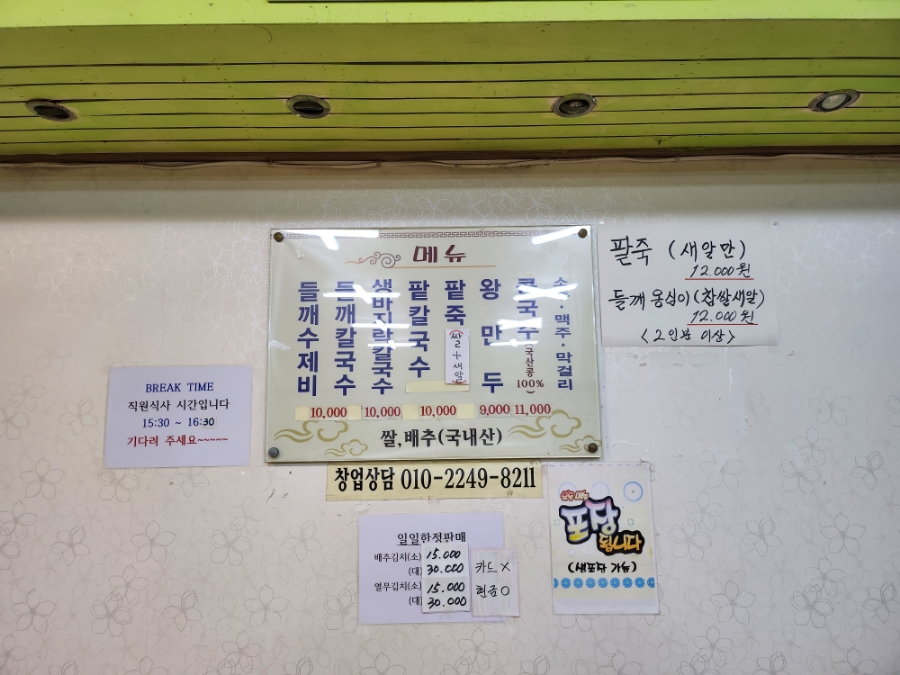 메뉴
들깨수제비
들깨칼국수
생바지락칼국수
팥칼국수
팥죽
쌀+새알
왕만두
콩국수(국산콩100%)
소주·맥주·막걸리
10,000 10,000 10,000 9,000 11,000
쌀,배추(국내산)
창업상담 010-2249-8211
팥죽 (새알만)
12.000원
들깨옹심이(찹쌀새알)
12.000원
<2인분 이상>
BREAK TIME
직원식사 시간입니다
15:30 ~ 16:30
기다려 주세요~~~~~
일일한젓판매
배추김치(소) 15.000
(대) 30.000
열무김치(소) 15.000
(대) 30.000
카드 X
현금 O
모든 메뉴
포장
됩니다